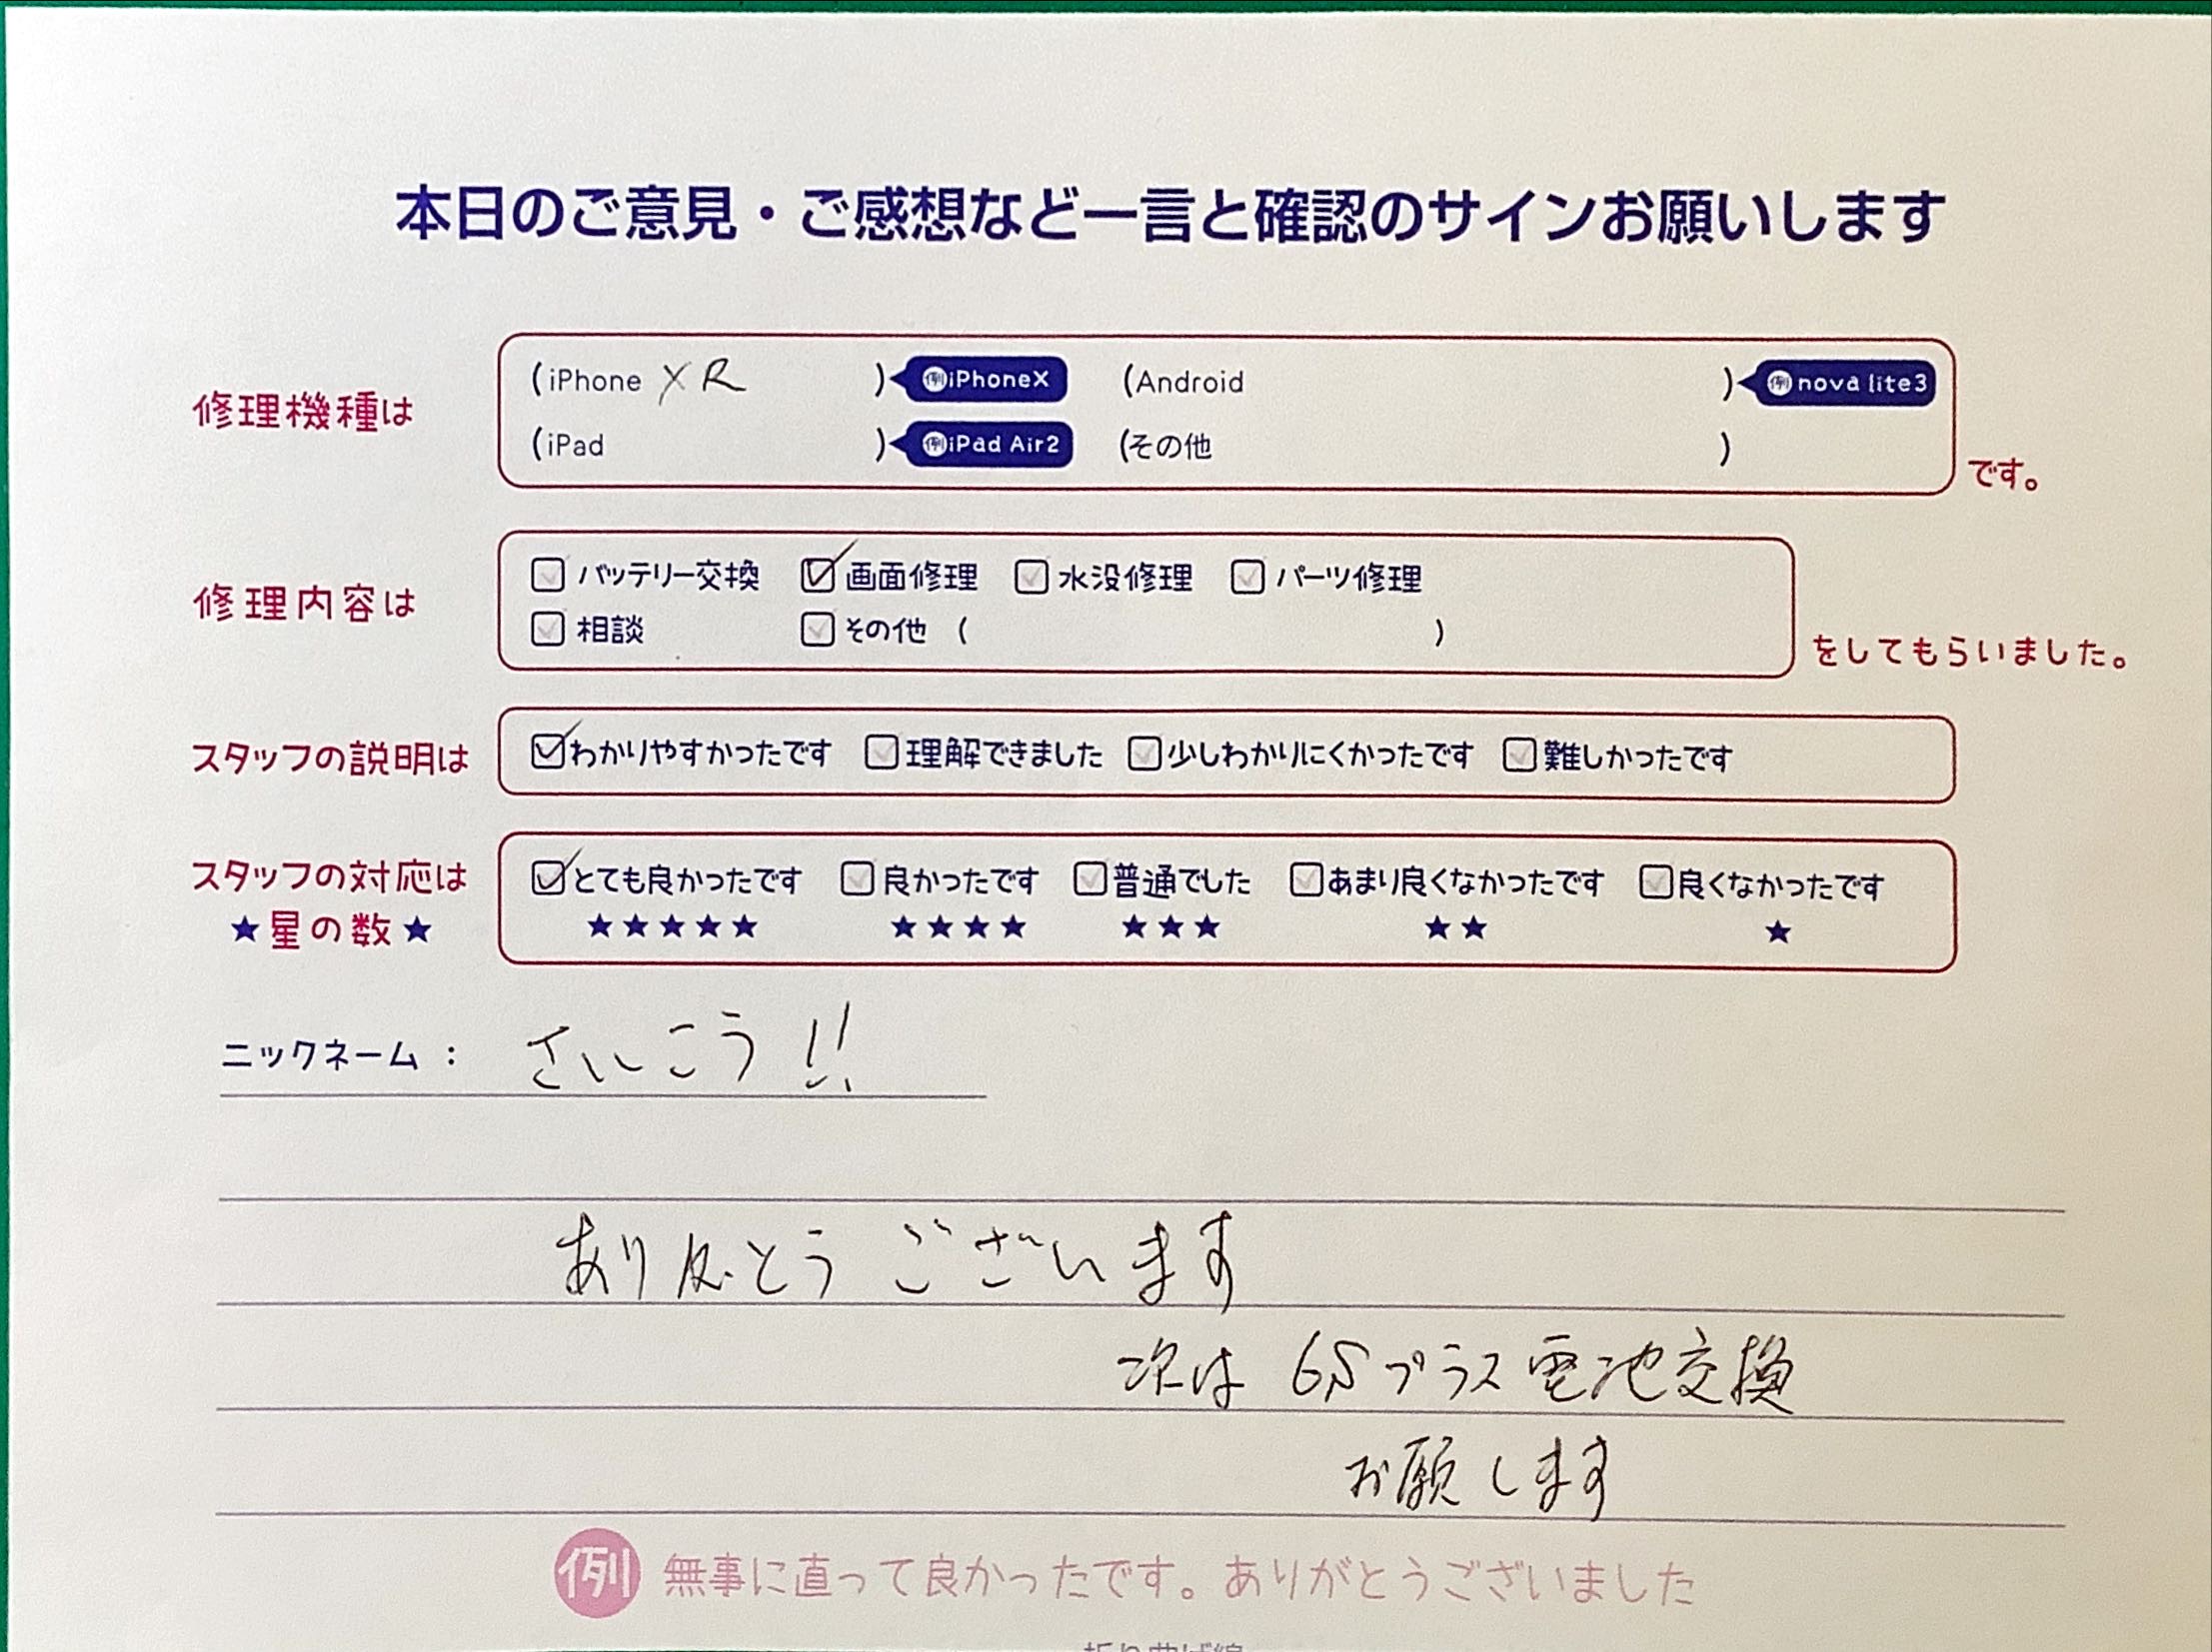 本日のご意見・ご感想など一言と確認のサインお願いします
修理機種は
(iPhone XR ) 例iPhoneX (Android ) 例nova lite3
(iPad ) 例iPad Air2 (その他 )
です。
修理内容は
バッテリー交換 画面修理 水没修理 パーツ修理
相談 その他 ( )
をしてもらいました。
スタッフの説明は
わかりやすかったです 理解できました 少しわかりにくかったです 難しかったです
スタッフの対応は
★星の数★
とても良かったです 良かったです 普通でした あまり良くなかったです 良くなかったです
★★★★★ ★★★★ ★★★ ★★ ★
ニックネーム： さいこう!!
ありがとうございます
次は 6Sプラス電池交換
お願します
例 無事に直って良かったです。ありがとうございました